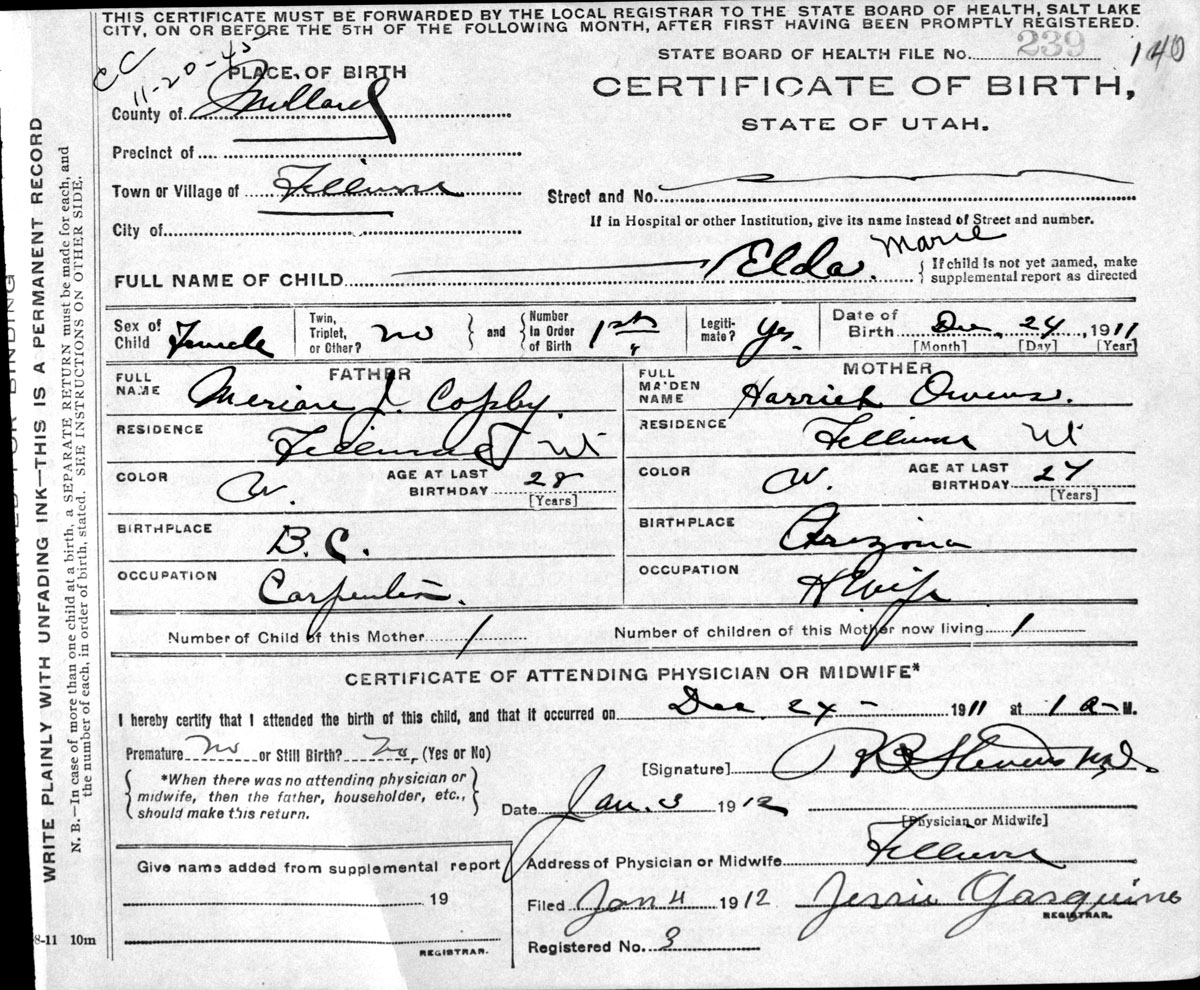 THIS CERTIFICATE MUST BE FORWARDED BY THE LOCAL REGISTRAR TO THE STATE BOARD OF HEALTH, SALT LAKE
CITY, ON OR BEFORE THE 5TH OF THE FOLLOWING MONTH, AFTER FIRST HAVING BEEN PROMPTLY REGISTERED.
STATE BOARD OF HEALTH FILE No. 239 140
CC
11-20-45
PLACE OF BIRTH
CERTIFICATE OF BIRTH,
STATE OF UTAH.
County of Millard
Precinct of
Town or Village of Fillmore
Street and No.
City of
If in Hospital or other Institution, give its name instead of Street and number.
FULL NAME OF CHILD Elda Marie
{ If child is not yet named, make
supplemental report as directed
Sex of Child Female
Twin, Triplet, or Other? no } and { Number In Order of Birth 1st
Legiti-mate? Yes
Date of Birth Dec 24, 1911
[Month] [Day] [Year]
FATHER
FULL NAME J. Cropley
RESIDENCE Fillmore Ut
COLOR W. AGE AT LAST BIRTHDAY 28
[Years]
BIRTHPLACE B.C.
OCCUPATION Carpenter.
MOTHER
FULL MAIDEN NAME Harriet Owens.
RESIDENCE Fillmore Ut
COLOR W. AGE AT LAST BIRTHDAY 27
[Years]
BIRTHPLACE Arizona
OCCUPATION HWife
Number of Child of this Mother 1
Number of children of this Mother now living 1
CERTIFICATE OF ATTENDING PHYSICIAN OR MIDWIFE*
I hereby certify that I attended the birth of this child, and that it occurred on Dec 24 - 1911 at 1 a- M.
Premature No or Still Birth? No, (Yes or No)
{ *When there was no attending physician or
midwife, then the father, householder, etc.,
should make this return. }
[Signature] Stevens M.D.
Date Jan. 3 1912
[Physician or Midwife]
Address of Physician or Midwife Fillmore
Give name added from supplemental report
19
REGISTRAR.
Filed Jan 4 1912 Jessie Gasquine
REGISTRAR.
Registered No. 3
8-11 10m
WRITE PLAINLY WITH UNFADING INK—THIS IS A PERMANENT RECORD
N. B.—In case of more than one child at a birth, a SEPARATE RETURN must be made for each, and
the number of each, in order of birth, stated. SEE INSTRUCTIONS ON OTHER SIDE.